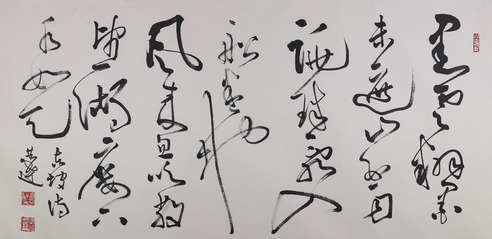 黑云翻墨
未遮山白雨
跳珠乱入
船卷地
风来忽吹散
望湖楼下
水如天
东坡诗